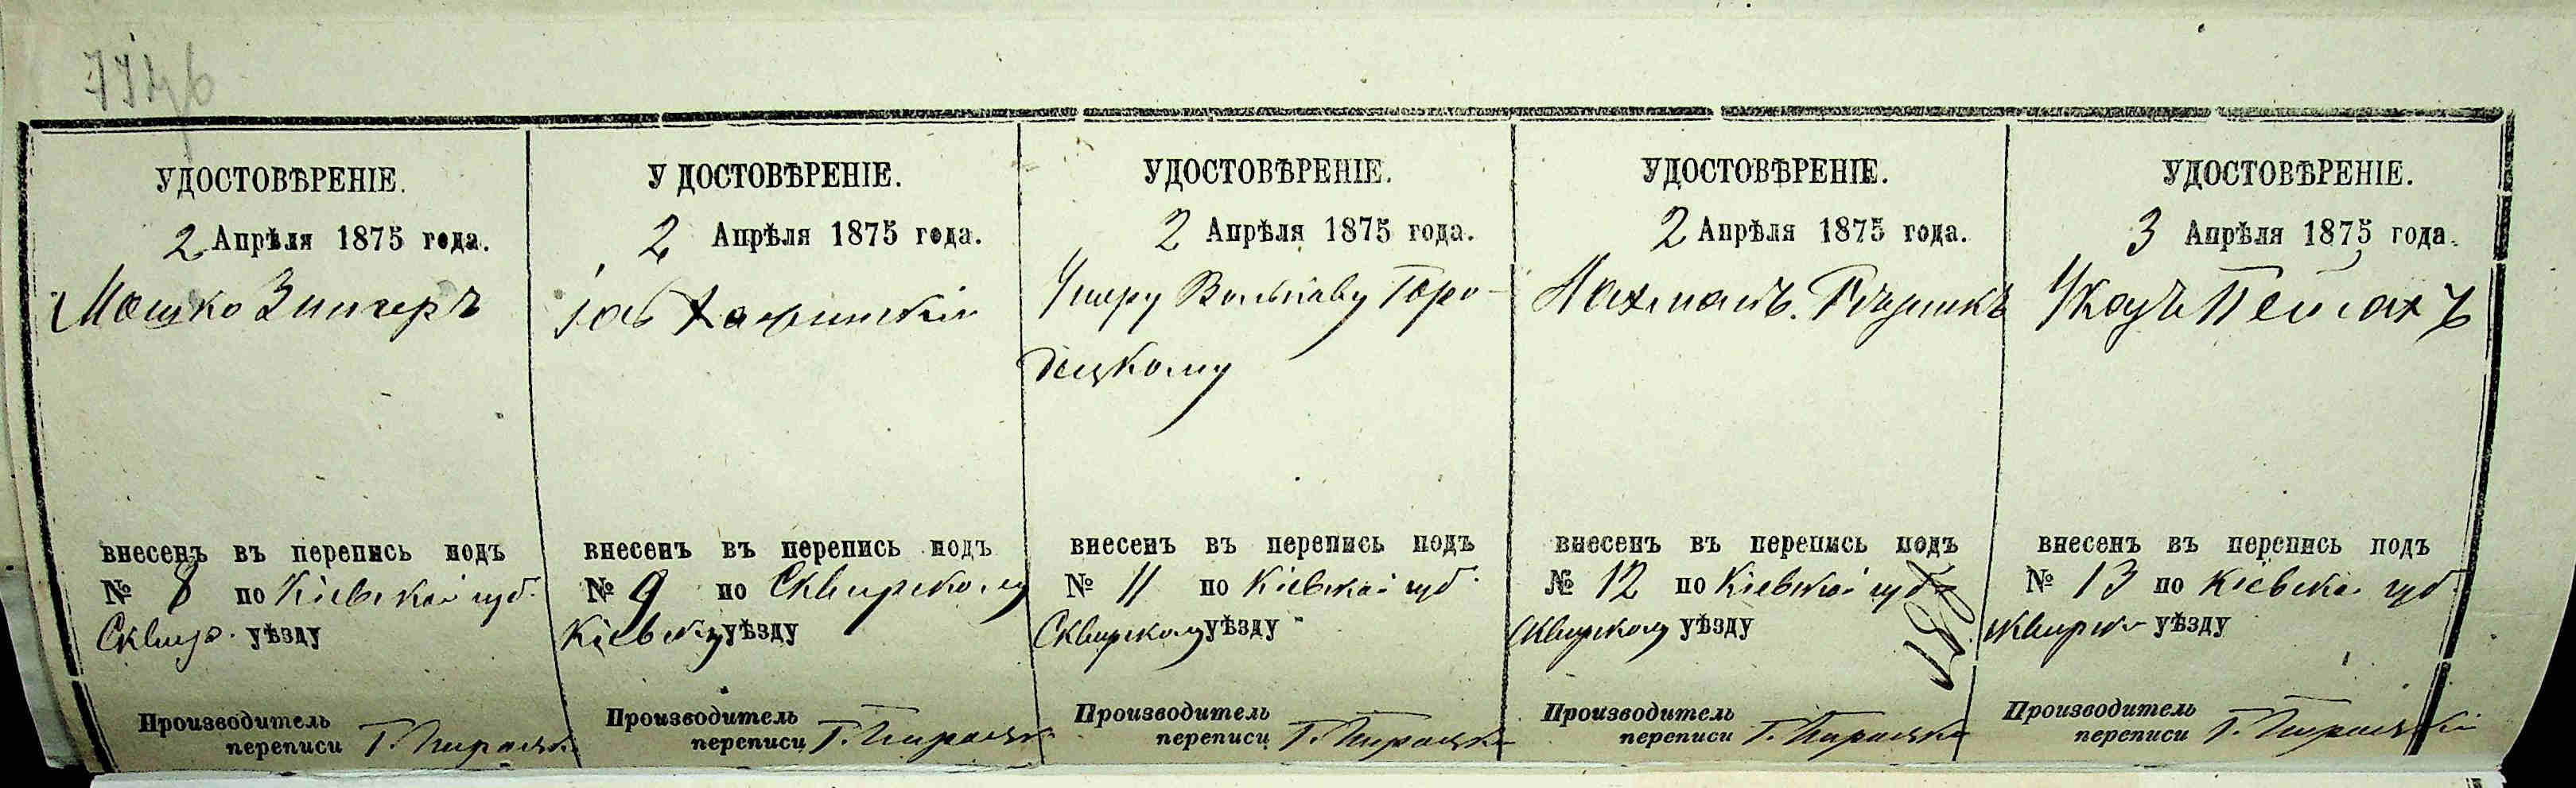 7746
УДОСТОВѢРЕНІЕ.
2 Апрѣля 1875 года.
Мошко Зингеръ
внесенъ въ перепись подъ
№ 8 по Кіевской губ.
Сквир. уѣзду
Производитель
переписи Г.
У ДОСТОВѢРЕНІЕ.
2 Апрѣля 1875 года.
внесенъ въ перепись подъ
№ 9 по Сквирскому
Кіевску уѣзду
Производитель
переписи Г.
УДОСТОВѢРЕНІЕ.
2 Апрѣля 1875 года.
Умеру Волькову Горо-
децкому
внесенъ въ перепись подъ
№ 11 по Кіевской губ.
Сквирскому уѣзду
Производитель
переписи Г.
УДОСТОВѢРЕНІЕ.
2 Апрѣля 1875 года.
Нахманъ.
внесенъ въ перепись подъ
№ 12 по Кіевской губ.
Сквирскому уѣзду
Производитель
переписи Г.
УДОСТОВѢРЕНІЕ.
3 Апрѣля 1875 года.
Пейсахъ
внесенъ въ перепись подъ
№ 13 по Кіевской губ.
Сквирск уѣзду
Производитель
переписи Г.